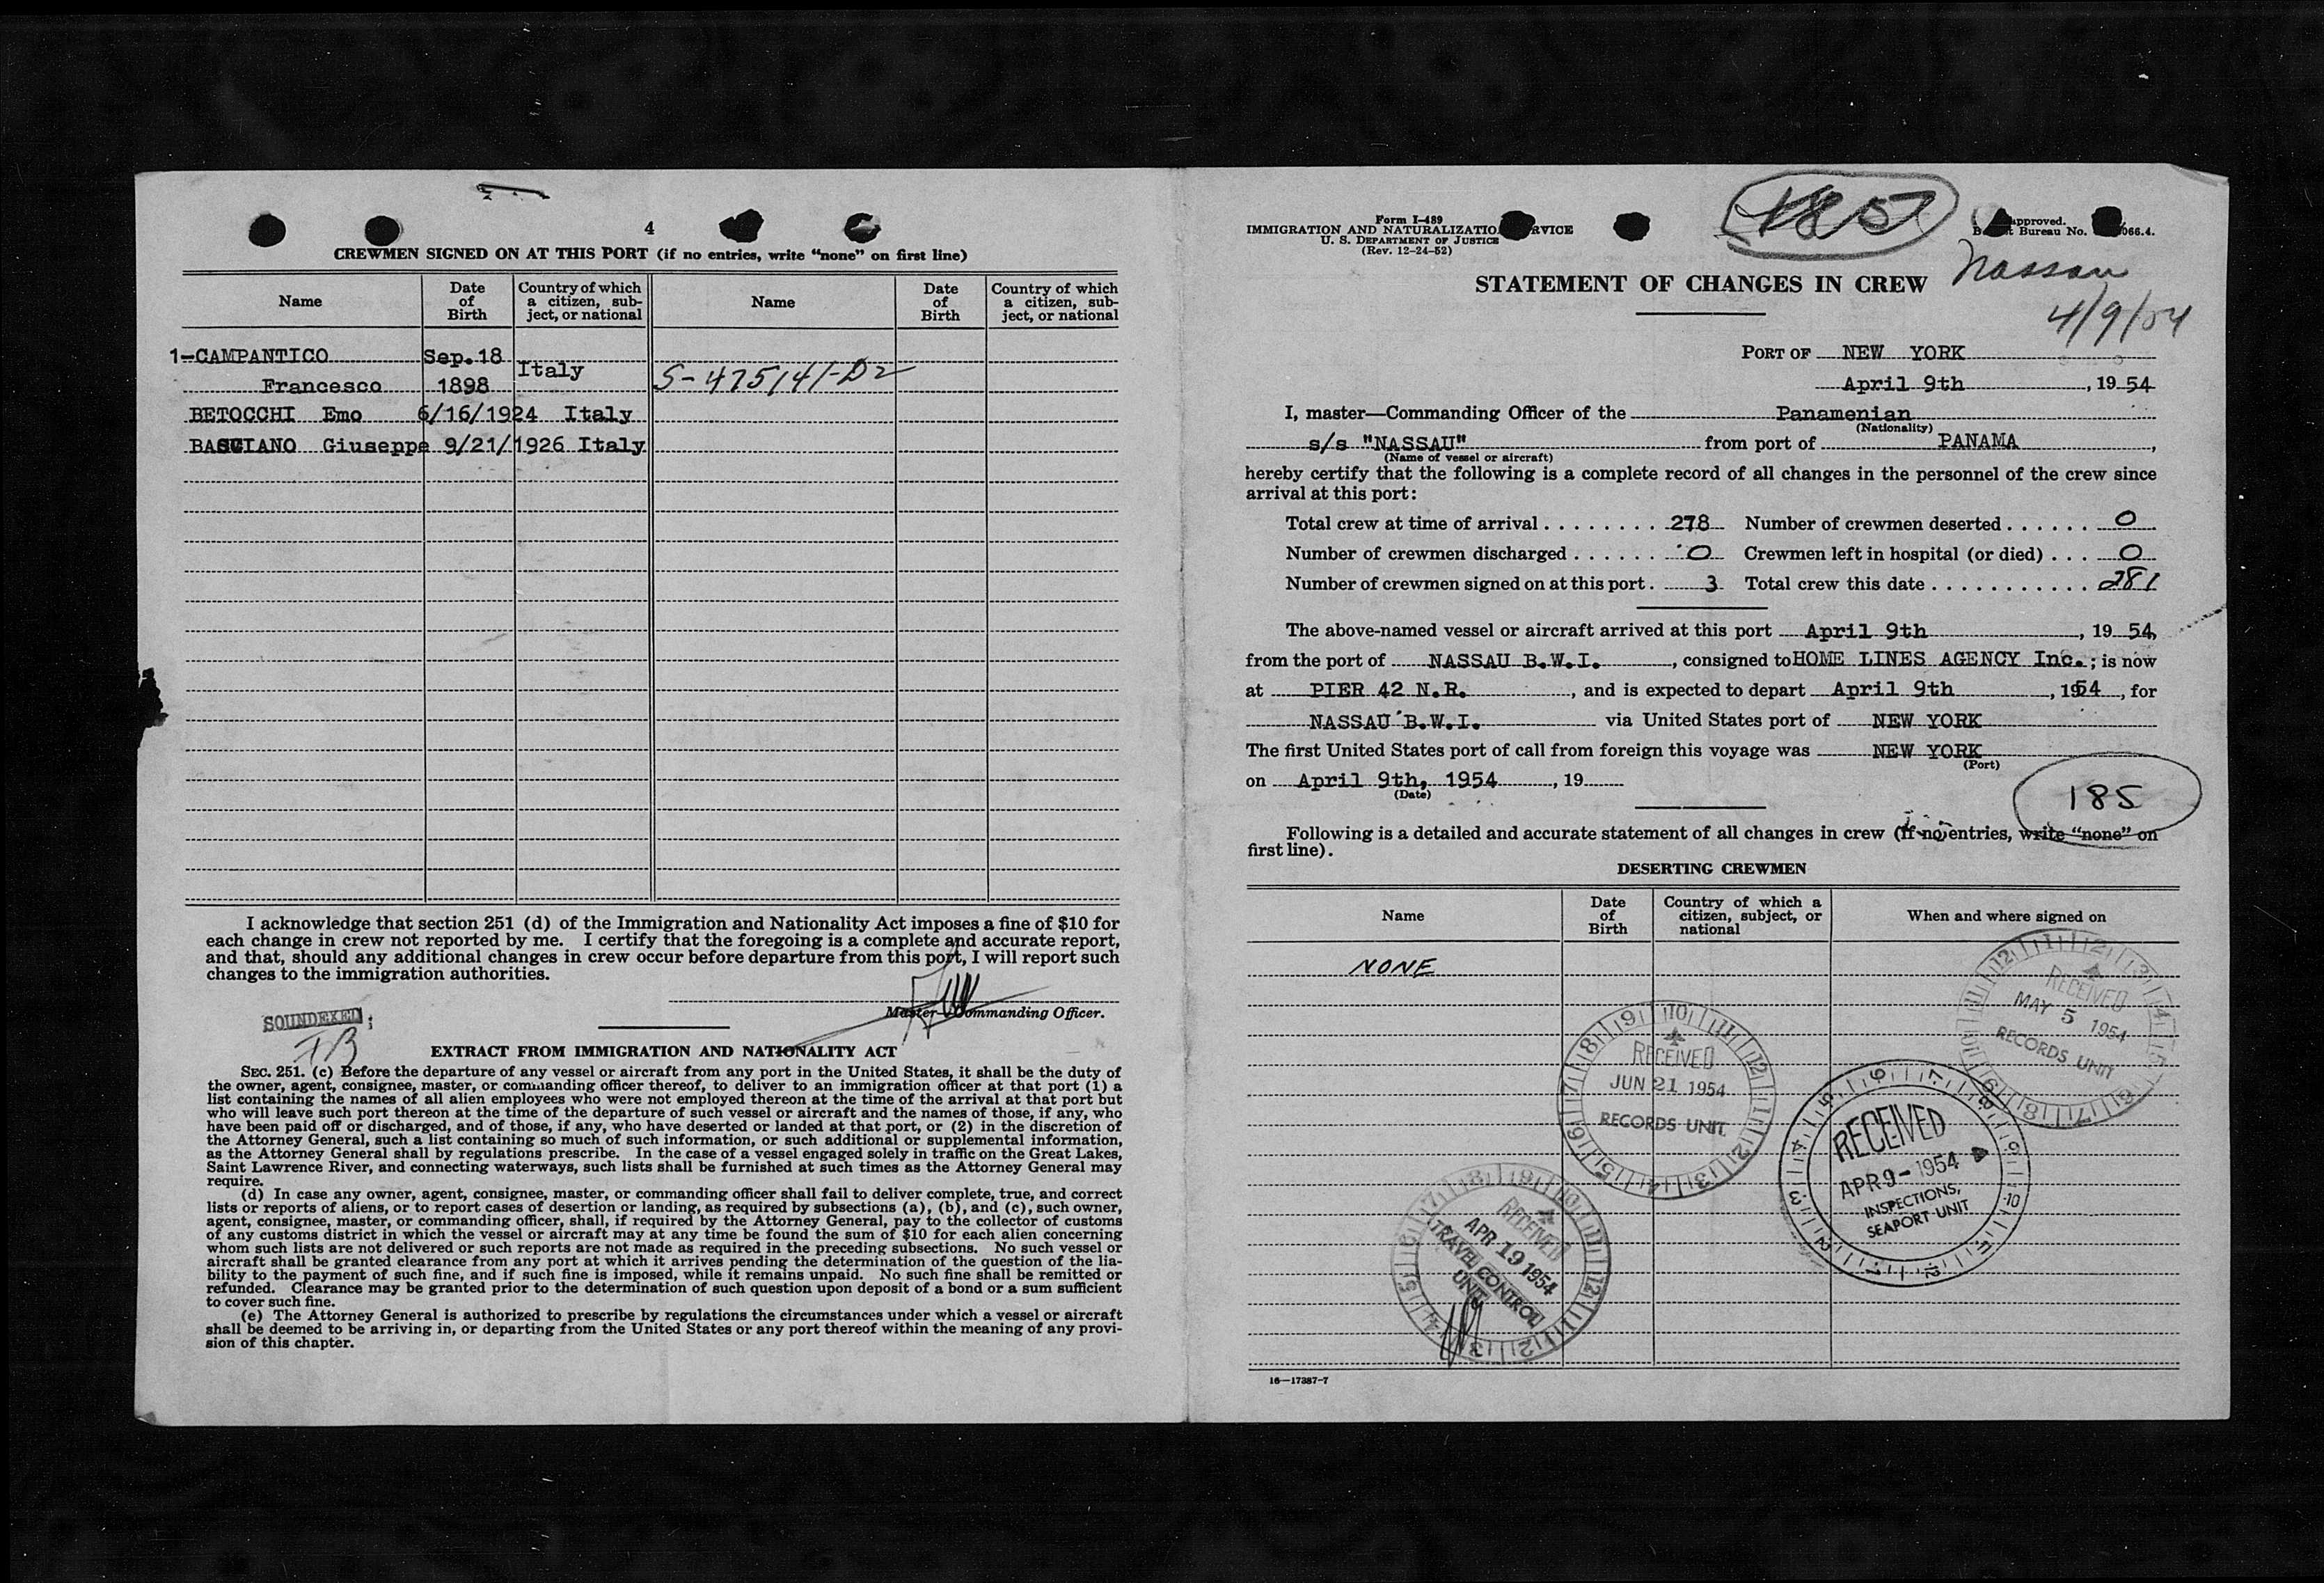 4
CREWMEN SIGNED ON AT THIS PORT (if no entries, write “none” on first line)
Name
Date of Birth
Country of which a citizen, sub-ject, or national
Name
Date of Birth
Country of which a citizen, sub-ject, or national
1-CAMPANTICO Sep.18 Italy S-475141-D2
Francesco 1898
BETOCCHI Emo 6/16/1924 Italy
Giuseppe 9/21/1926 Italy
I acknowledge that section 251 (d) of the Immigration and Nationality Act imposes a fine of $10 for
each change in crew not reported by me. I certify that the foregoing is a complete and accurate report,
and that, should any additional changes in crew occur before departure from this port, I will report such
changes to the immigration authorities.
Master—Commanding Officer.
SOUNDEXED
EXTRACT FROM IMMIGRATION AND NATIONALITY ACT
SEC. 251. (c) Before the departure of any vessel or aircraft from any port in the United States, it shall be the duty of
the owner, agent, consignee, master, or commanding officer thereof, to deliver to an immigration officer at that port (1) a
list containing the names of all alien employees who were not employed thereon at the time of the arrival at that port but
who will leave such port thereon at the time of the departure of such vessel or aircraft and the names of those, if any, who
have been paid off or discharged, and of those, if any, who have deserted or landed at that port, or (2) in the discretion of
the Attorney General, such a list containing so much of such information, or such additional or supplemental information,
as the Attorney General shall by regulations prescribe. In the case of a vessel engaged solely in traffic on the Great Lakes,
Saint Lawrence River, and connecting waterways, such lists shall be furnished at such times as the Attorney General may
require.
(d) In case any owner, agent, consignee, master, or commanding officer shall fail to deliver complete, true, and correct
lists or reports of aliens, or to report cases of desertion or landing, as required by subsections (a), (b), and (c), such owner,
agent, consignee, master, or commanding officer, shall, if required by the Attorney General, pay to the collector of customs
of any customs district in which the vessel or aircraft may at any time be found the sum of $10 for each alien concerning
whom such lists are not delivered or such reports are not made as required in the preceding subsections. No such vessel or
aircraft shall be granted clearance from any port at which it arrives pending the determination of the question of the lia-
bility to the payment of such fine, and if such fine is imposed, while it remains unpaid. No such fine shall be remitted or
refunded. Clearance may be granted prior to the determination of such question upon deposit of a bond or a sum sufficient
to cover such fine.
(e) The Attorney General is authorized to prescribe by regulations the circumstances under which a vessel or aircraft
shall be deemed to be arriving in, or departing from the United States or any port thereof within the meaning of any provi-
sion of this chapter.
Form I-489
IMMIGRATION AND NATURALIZATION SERVICE
U. S. DEPARTMENT OF JUSTICE
(Rev. 12-24-52)
185
approved.
Bureau No. 066.4.
Nassau
4/9/54
STATEMENT OF CHANGES IN CREW
PORT OF NEW YORK
April 9th, 1954
I, master—Commanding Officer of the Panamenian
(Nationality)
s/s "NASSAU" from port of PANAMA,
(Name of vessel or aircraft)
hereby certify that the following is a complete record of all changes in the personnel of the crew since
arrival at this port:
Total crew at time of arrival 278 Number of crewmen deserted 0
Number of crewmen discharged 0 Crewmen left in hospital (or died) 0
Number of crewmen signed on at this port. 3 Total crew this date 281
The above-named vessel or aircraft arrived at this port April 9th, 1954,
from the port of NASSAU B.W.I., consigned to HOME LINES AGENCY Inc.; is now
at PIER 42 N.R., and is expected to depart April 9th, 1954, for
NASSAU B.W.I. via United States port of NEW YORK
The first United States port of call from foreign this voyage was NEW YORK
(Port)
on April 9th, 1954, 19
(Date)
185
Following is a detailed and accurate statement of all changes in crew (if no entries, write “none” on
first line).
DESERTING CREWMEN
Name
Date of Birth
Country of which a citizen, subject, or national
When and where signed on
NONE
RECEIVED
MAY 5 1954
RECORDS UNIT
RECEIVED
JUN 21 1954
RECORDS UNIT
RECEIVED
APR 9-1954
INSPECTIONS,
SEAPORT UNIT
RECEIVED
APR 19 1954
TRAVEL CONTROL
UNIT
16—17387-7